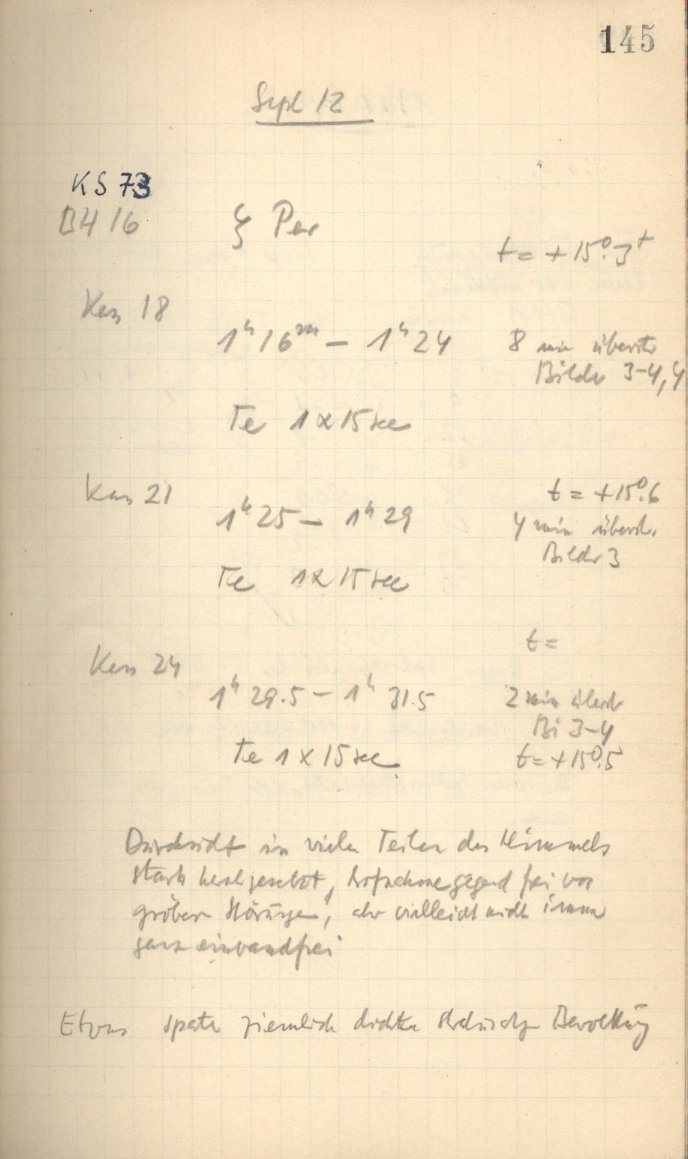 145
Sept 12
KS 73
BH 16 ξ Per
t = + 15°.3
Kas 18
1h 16m – 1h 24 8 min
Bilder 3-4, 4
Te 1 x 15 sec
Kas 21 t = + 15°.6
1h 25 – 1h 29 4 min
Bilder 3
Te 1 x 15 sec
t =
Kas 24
1h 29.5 – 1h 31.5 2 min
Bi 3-4
Te 1 x 15 sec t = + 15°.5
Durchsicht in vielen Teilen des Himmels
stark herabgesetzt, Aufnahmegegend frei von
gröberen Störungen, aber vielleicht nicht immer
ganz einwandfrei
Etwas später ziemlich dichte Bewölkung